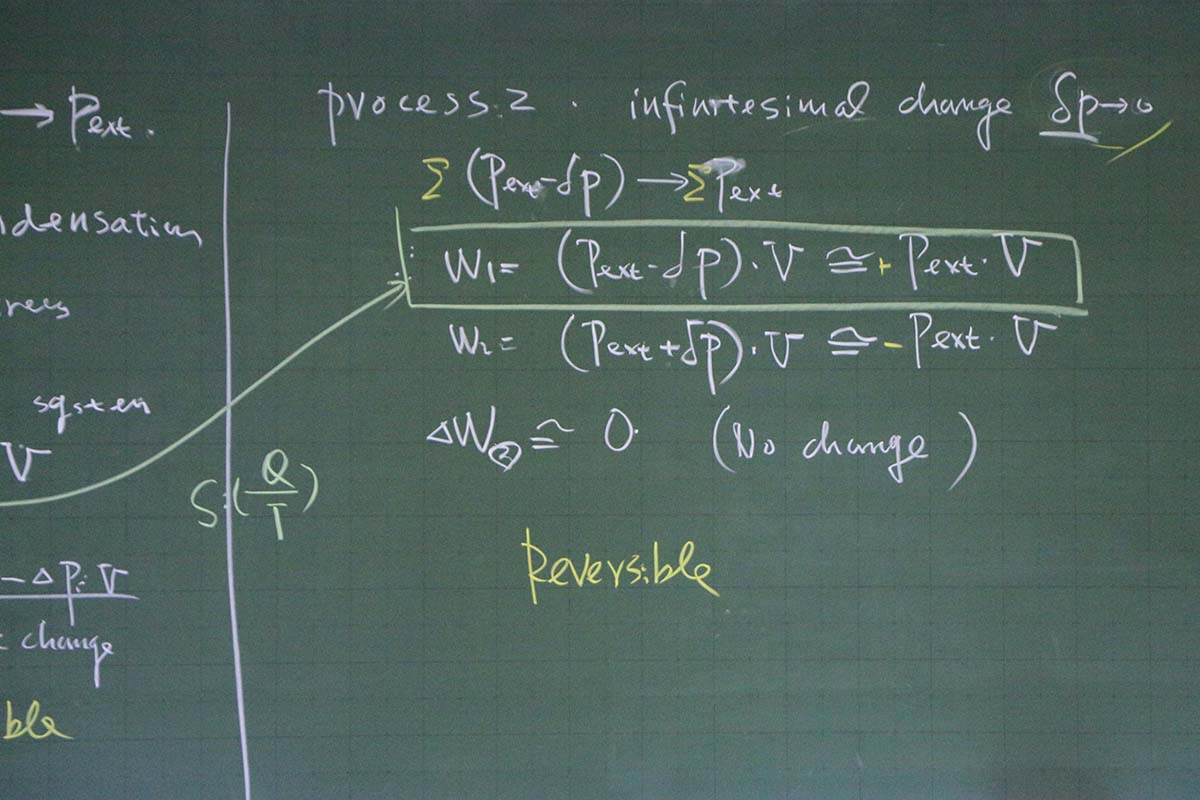 → Pext.
ndensation
sqsten
V
S:(Q/T)
-ΔP:V
change
ble
process.2 . infinitesimal change δp→0
Σ(Pext-δp) → ΣPext
W1= (Pext-δp)·V ≅+ Pext·V
W2= (Pext+δp)·V ≅- Pext·V
ΔW(2) ≅ 0. (No change)
Reversible